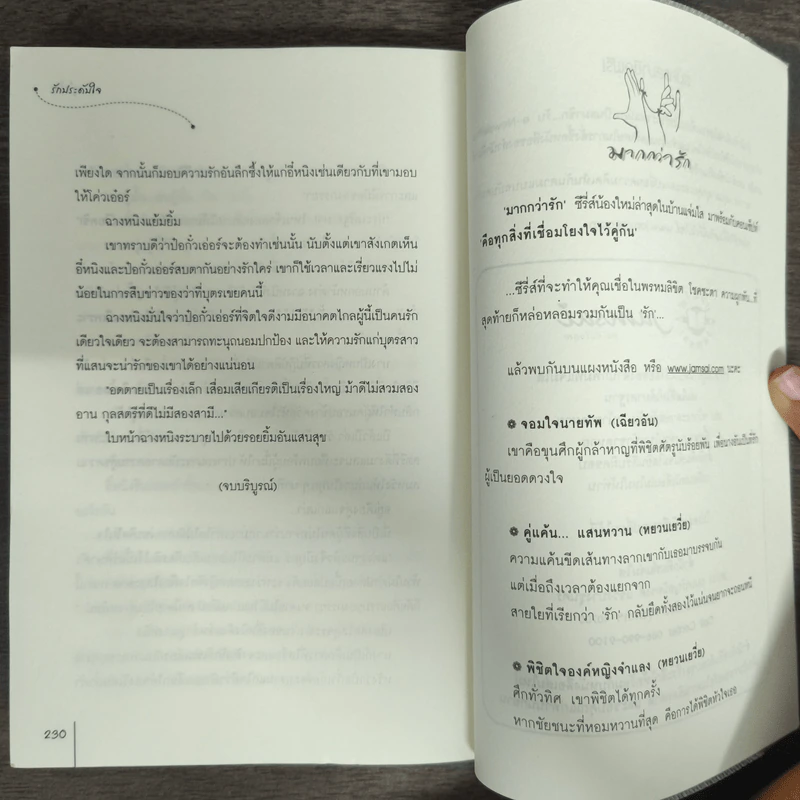 รักประดับใจ
เพียงใด จากนั้นก็มอบความรักอันลึกซึ้งให้แก่อี่หนิงเช่นเดียวกับที่เขามอบ
ให้โค่วเอ๋อร์
ฉางหนิงแย้มยิ้ม
เขาทราบดีว่าป๋อกั๋วเอ่อร์จะต้องทำเช่นนั้น นับตั้งแต่เขาสังเกตเห็น
อี่หนิงและป๋อกั๋วเอ่อร์สบตากันอย่างรักใคร่ เขาก็ใช้เวลาและเรี่ยวแรงไปไม่
น้อยในการสืบข่าวของว่าที่บุตรเขยคนนี้
ฉางหนิงมั่นใจว่าป๋อกั๋วเอ่อร์ที่จิตใจดีงามมีอนาคตไกลผู้นี้เป็นคนรัก
เดียวใจเดียว จะต้องสามารถทะนุถนอมปกป้อง และให้ความรักแก่บุตรสาว
ที่แสนจะน่ารักของเขาได้อย่างแน่นอน
"อดตายเป็นเรื่องเล็ก เสื่อมเสียเกียรติเป็นเรื่องใหญ่ ม้าดีไม่สวมสอง
อาน กุลสตรีที่ดีไม่มีสองสามี..."
ใบหน้าฉางหนิงระบายไปด้วยรอยยิ้มอันแสนสุข
(จบบริบูรณ์)
230
มากกว่ารัก
'มากกว่ารัก' ซีรี่ส์น้องใหม่ล่าสุดในบ้านแจ่มใส มาพร้อมกับคอนเซ็ปต์
'คือทุกสิ่งที่เชื่อมโยงใจไว้คู่กัน'
...ซีรี่ส์ที่จะทำให้คุณเชื่อในพรหมลิขิต โชคชะตา ความผูกพัน...ที่
สุดท้ายก็หล่อหลอมรวมกันเป็น 'รัก'...
แล้วพบกันบนแผงหนังสือ หรือ www.jamsai.com นะคะ
จอมใจนายทัพ (เฉียวอัน)
เขาคือขุนศึกผู้กล้าหาญที่พิชิตศัตรูนับร้อยพัน เพื่อนาง
ผู้เป็นยอดดวงใจ
คู่แค้น... แสนหวาน (หยวนเยวี่ย)
ความแค้นขีดเส้นทางลากเขากับเธอมาบรรจบกัน
แต่เมื่อถึงเวลาต้องแยกจาก
สายใยที่เรียกว่า 'รัก' กลับยึดทั้งสองไว้แน่นจนยากจะถอนหนี
พิชิตใจองค์หญิงจำแลง (หยวนเยวี่ย)
ศึกทั่วทิศ เขาพิชิตได้ทุกครั้ง
หากชัยชนะที่หอมหวานที่สุด คือการได้พิชิตหัวใจเธอ